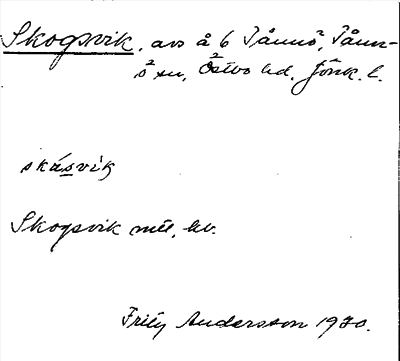 Skogsvik, avs å 6 Tånnö, Tånn-
ö sn, Östbo hd. Jönk. l.
skásvik
Skogsvik mtl. kv.
Fritz Andersson 1930.